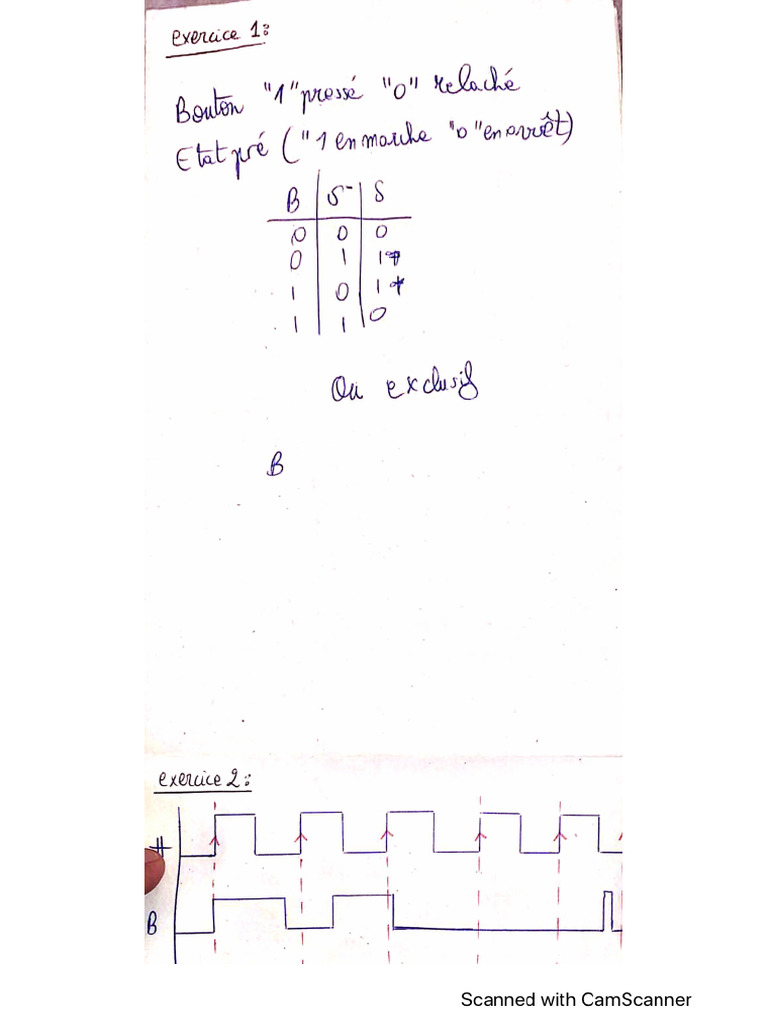 exercice 1:
Bouton "1" pressé "0" relaché
Etat pré ("1 en marche "0" en arrêt)
B S⁻ S
0 0 0
0 1 1*
1 0 1*
1 1 0
Ou exclusif
B
exercice 2:
H
B
Scanned with CamScanner